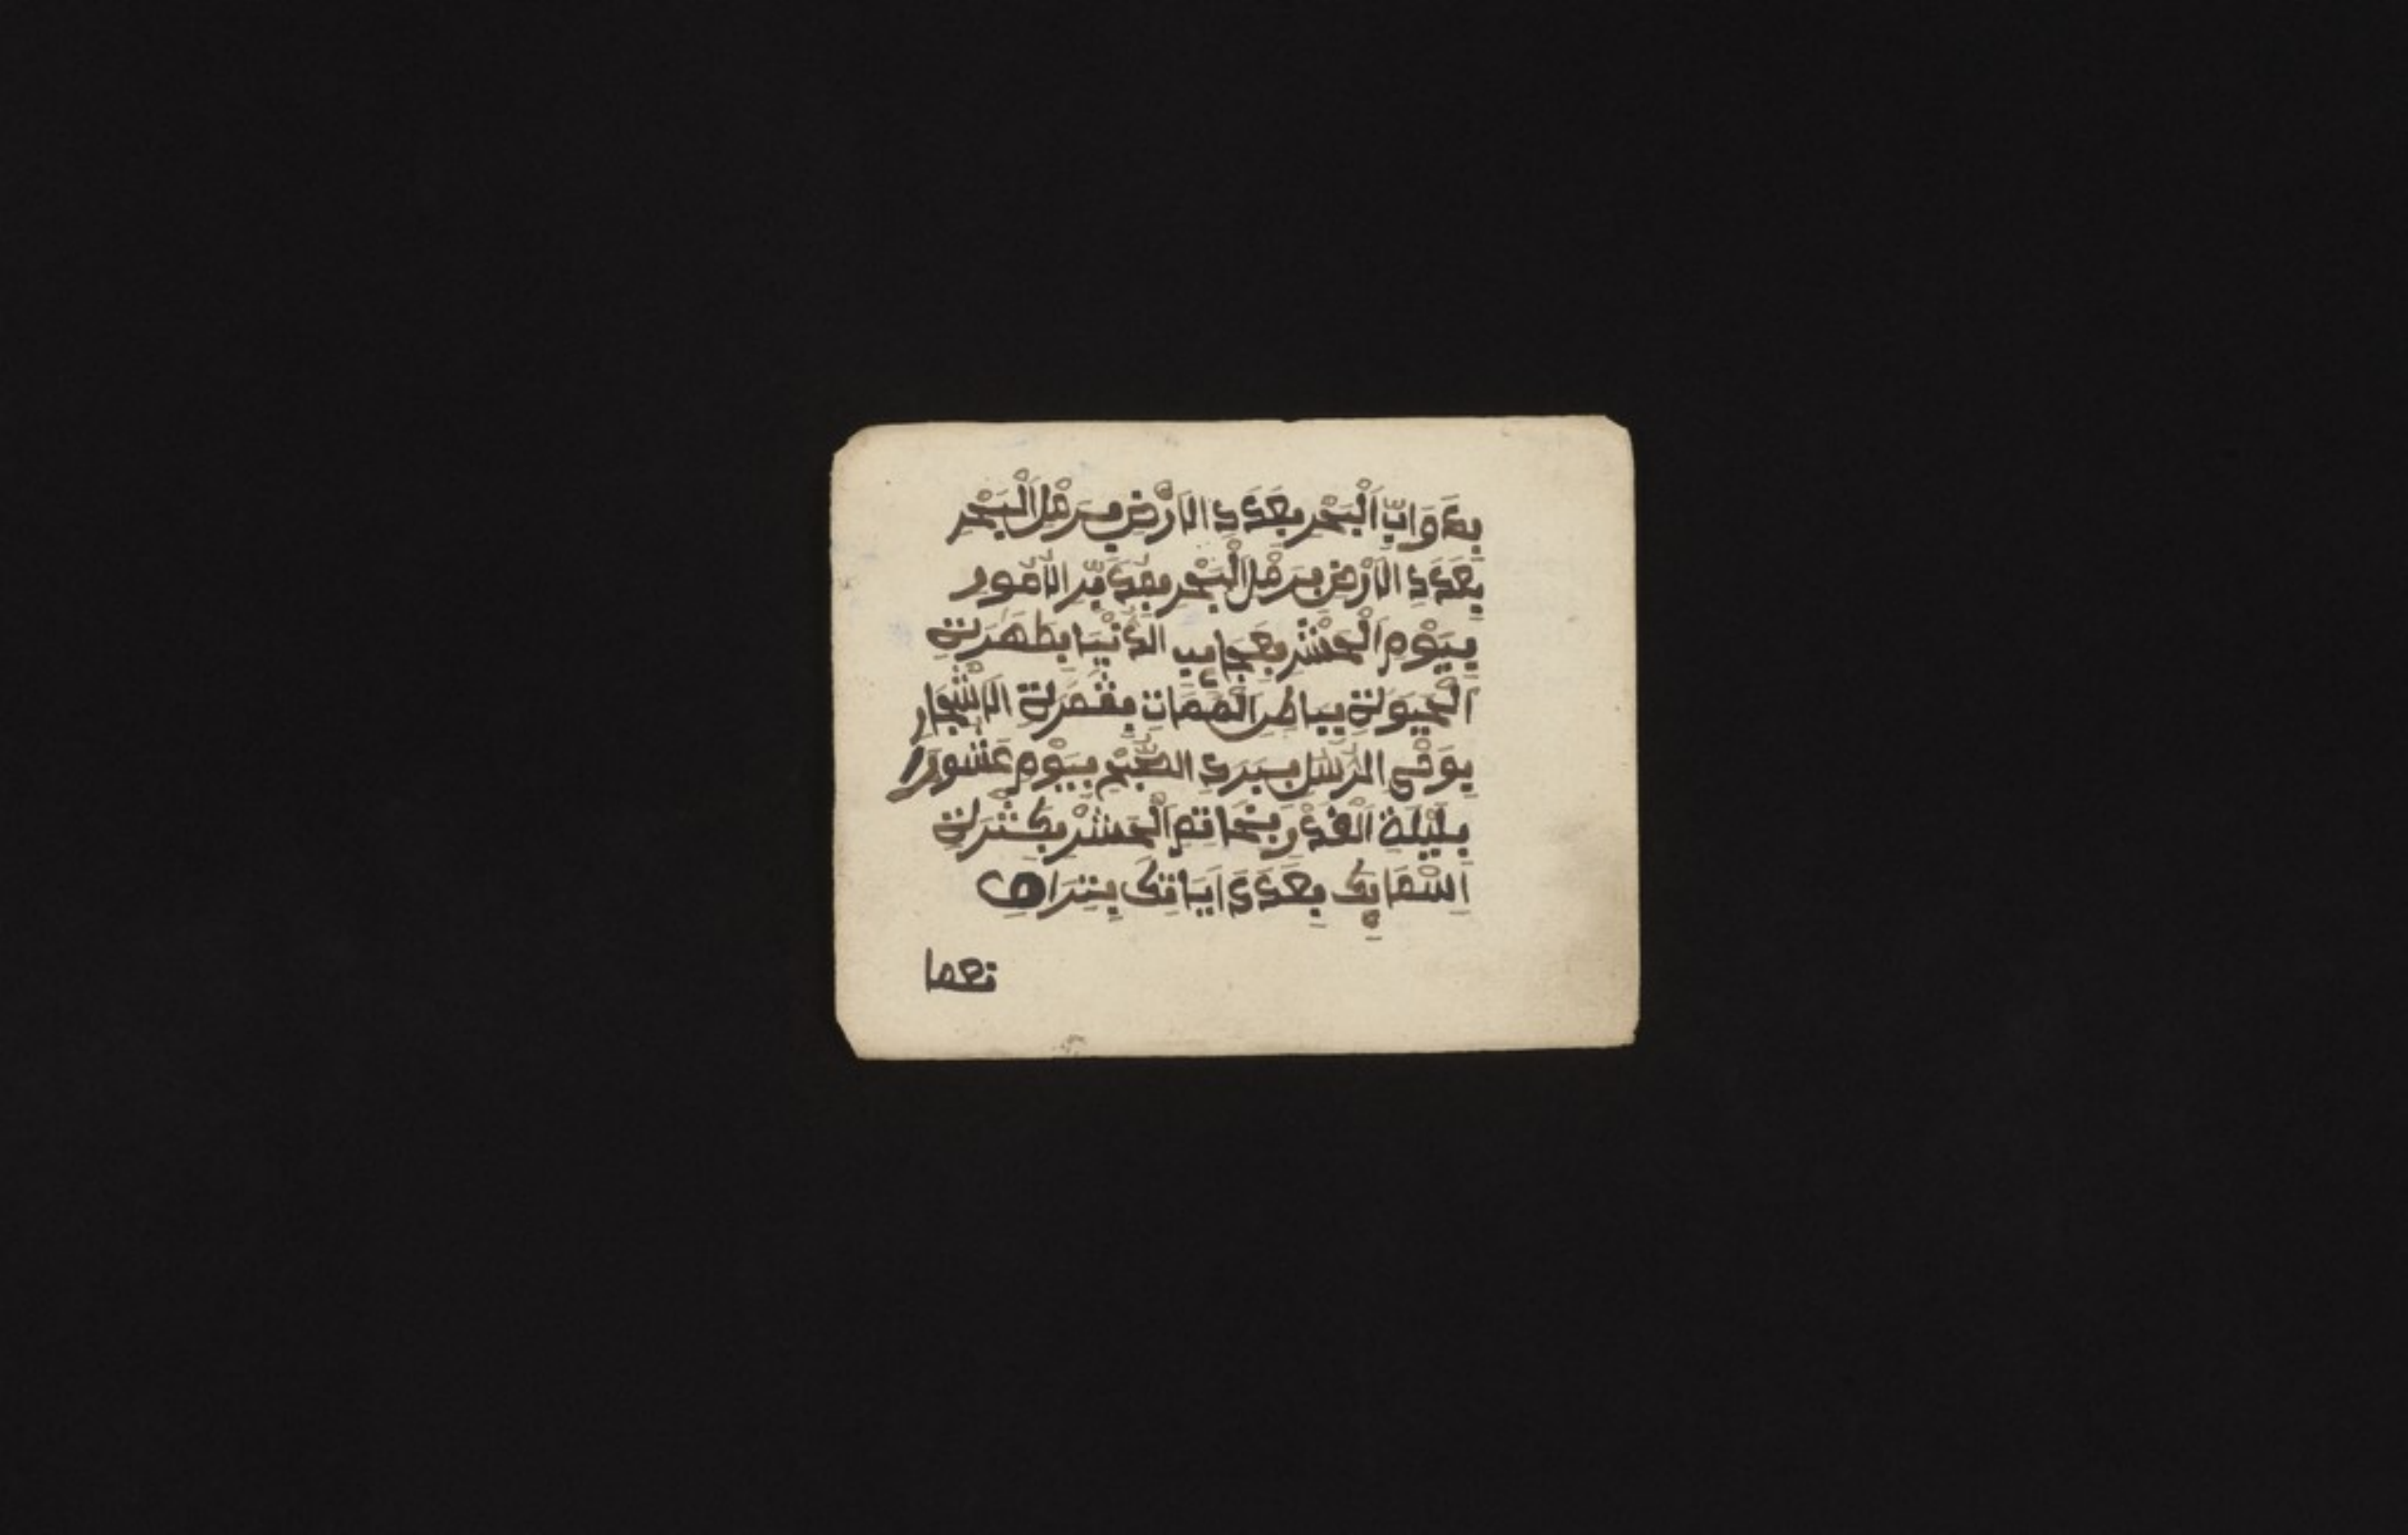 بِعَدَوَابِّ اَلْبَحْرِ بِعَدَدِ الَارْضِ بِرَمْلِ اَلْبَحْرِ
بِعَدَدِ الَارْضِ بِرَمْلِ اَلْبَحْرِ بِمُدَبِّرِ الأُمُورِ
بِيَوْمِ اَلْحَشْرِ بِعَجَايِبِ الدُّنْيَا بِظَهَرَةِ
اَلْحَيَوَةِ بِبَاطِنِ اَلْمَمَاتِ بِثَمَرَةِ الَاشْجَارِ
بِوَحْىِ الرُّسُلِ بِبَرَدِ الصُّبْحِ بِيَوْمِ عَشُورَا
بِلَيْلَةِ اَلْقَدْرِ بِخَاتِمِ اَلْحَشْرِ بِكَثْرَةِ
اَسْمَايِكَ بِعَدَدِ اَيَاتِكَ بِتِرَادِ
نعما